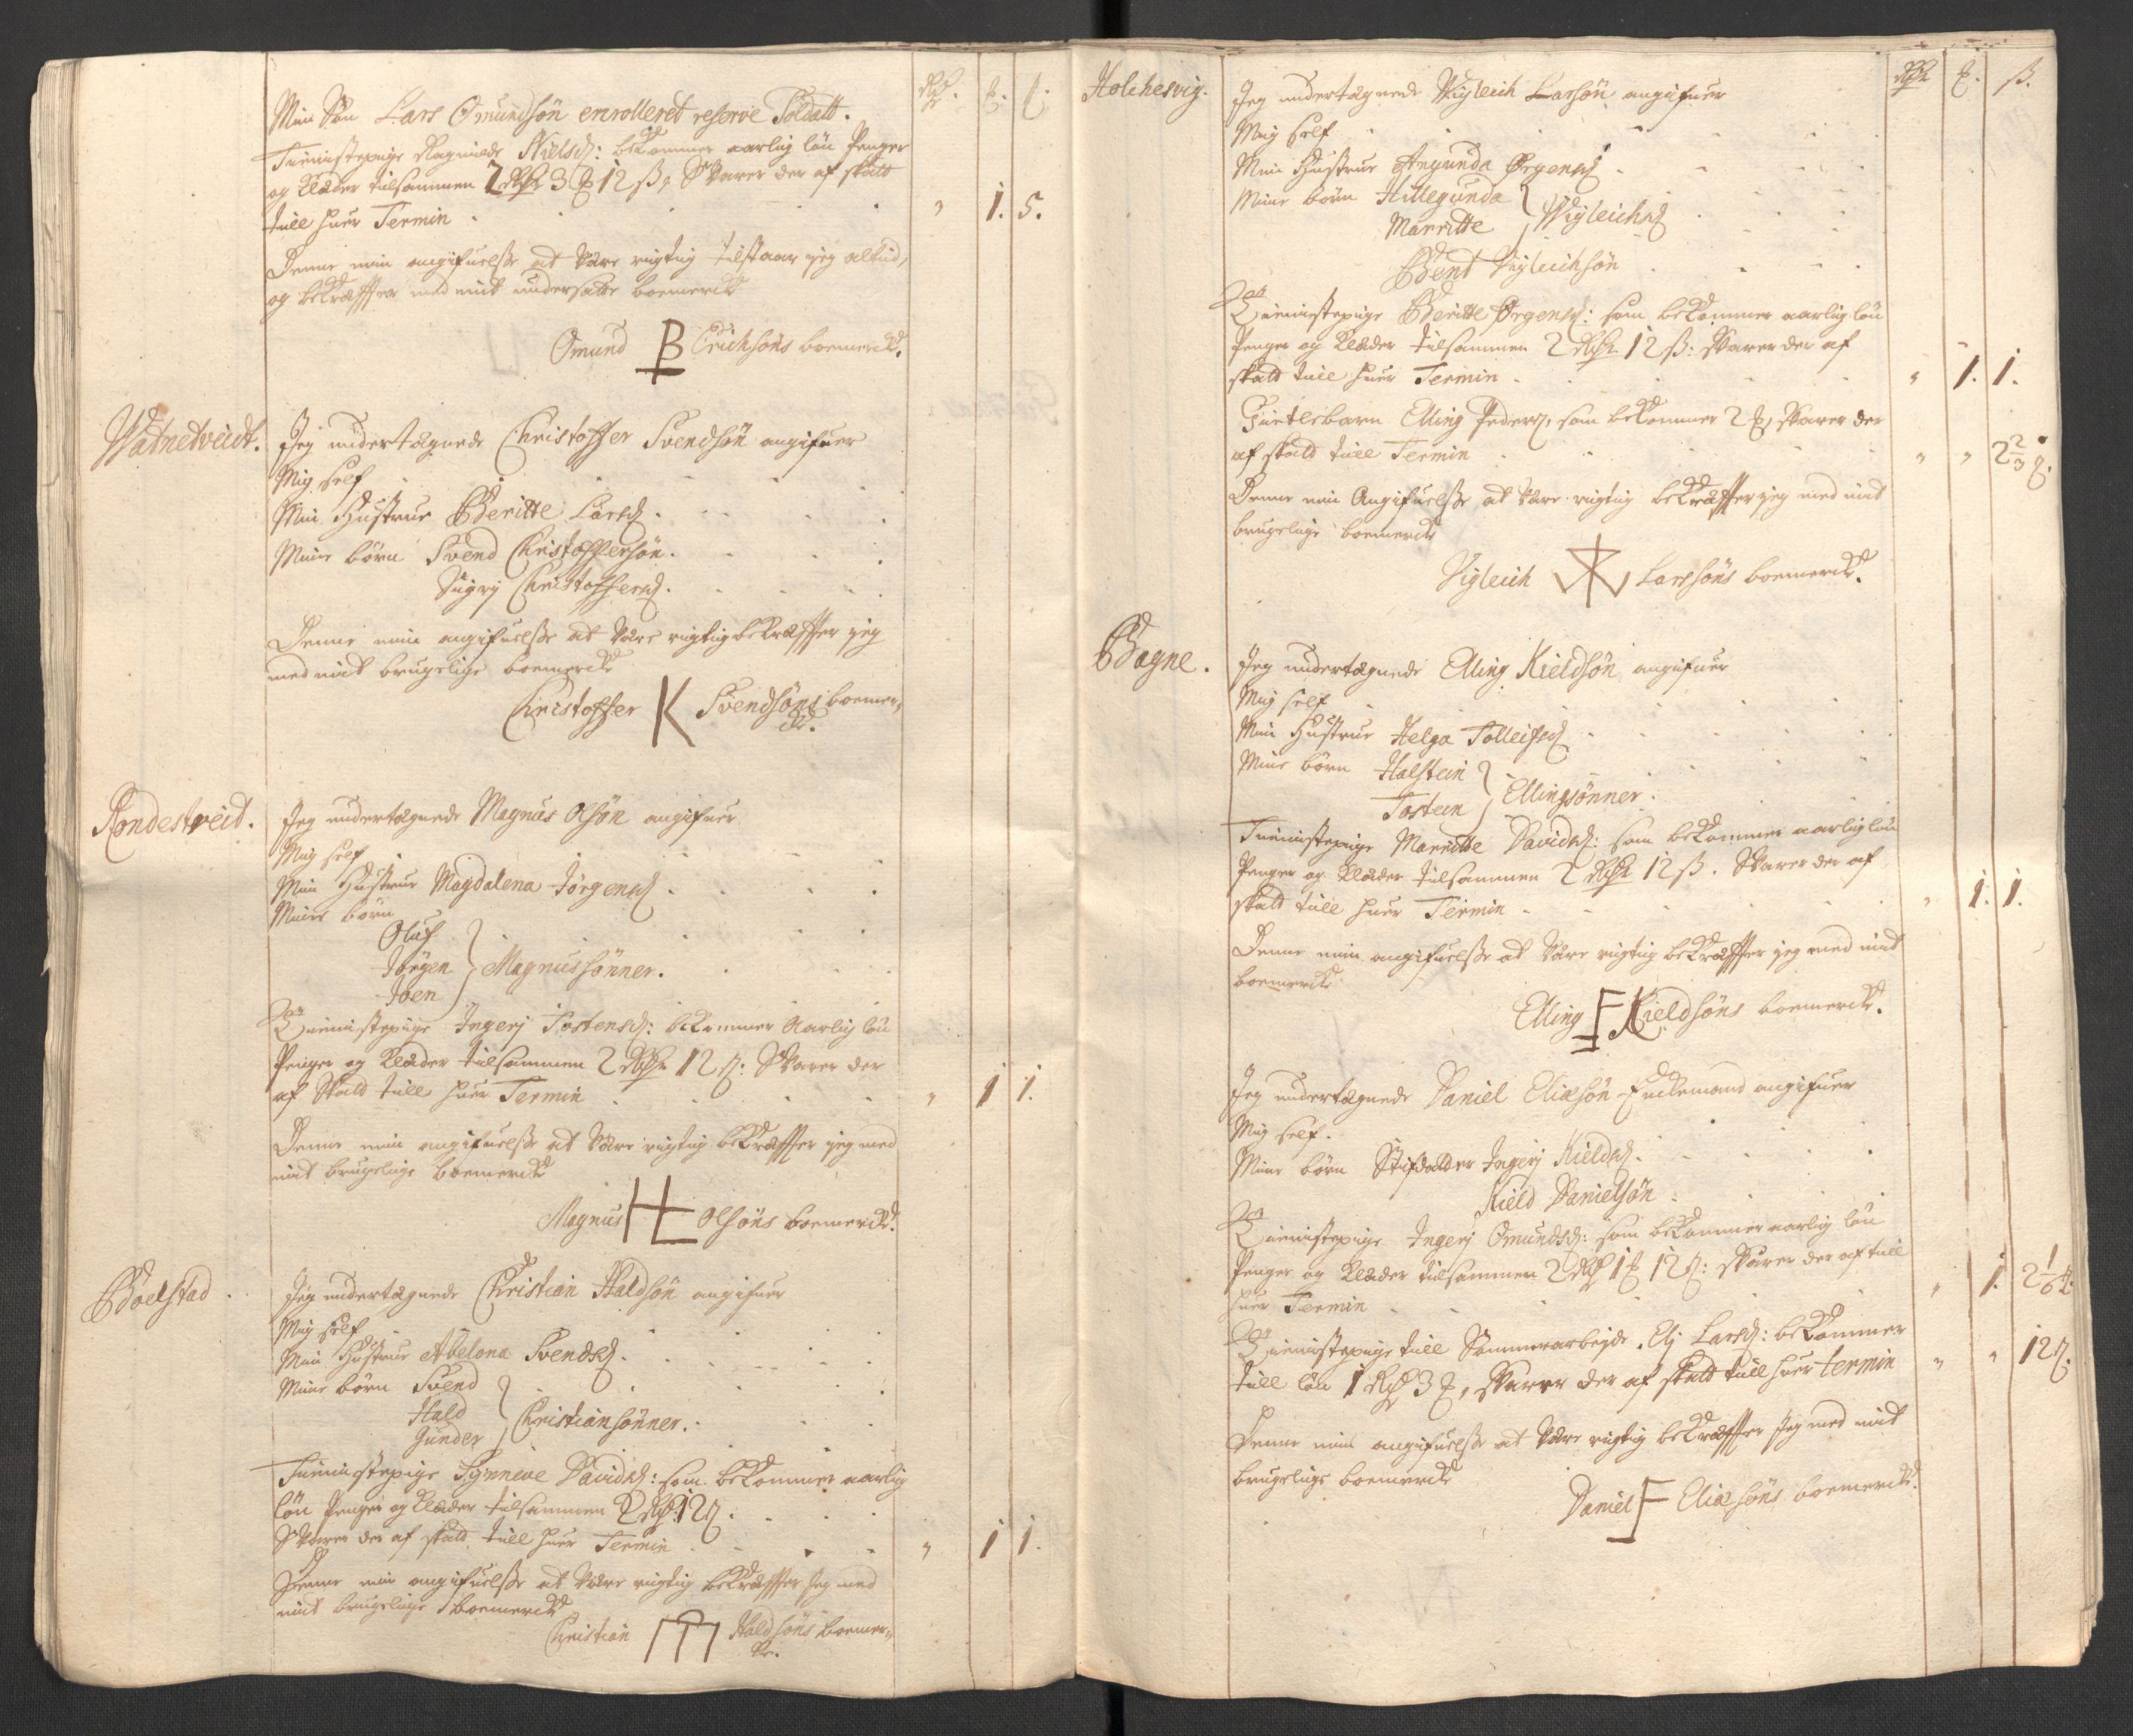 Rdr. ₰. ß.
Min Søn Lars Omundsøn enrolleret reserve Soldatt.
Tienistepige Ragnilde Nielsd: bekommer aarlig løn Penger
og Klæder tilsammen 2 Rdr 3 ₰ 12 ß, Svarer der af skatt
till huer Termin . . . " 1. 5.
Denne min angifuelsse at være rigtig tilstaar jeg altiid,
og bekræffter med mit undersatte boemercke
Omund B Erichsøns boemercke.
Watnetveidt. Jeg undertægnede Christoffer Svendsøn angifuer
Mig self
Min Hustrue Beritte Larsd.
Mine børn Svend Christoffersøn.
Sigrj Christoffersd.
Denne min angifuelsse at være rigtig bekræffter jeg
med mit brugelige boemercke
Christoffer K Svendsøns boemer-
cke.
Rondestveit. Jeg undertægnede Magnus Olsøn angifuer
Mig self
Min Hustrue Magdalena Jørgensd.
Mine børn
Oluf
Jørgen } Magnussønner.
Joen
Tienistepige Ingerj Tostensd: bekommer Aarlig løn
Penger og Klæder tilsammen 2 Rdr 12 ß: Svarer der
af Skatt till huer Termin . . . " 1 1.
Denne min angifuelsse at være rigtig bekræffter jeg med
mit brugelige boemercke
Magnus HL Olsøns boemercke.
Boelstad. Jeg undertægnede Christian Haldsøn angifuer
Mig self
Min Hustrue Abelona Svendsd.
Mine børn Svend
Hald } Christiansønner.
Gunder
Tienistepige Synneve Davidsd: som bekommer aarlig
løn Penger og Klæder tilsammen 2 Rdr 12 ß.
Svarer der af skatt till huer Termin . . . " 1 1.
Denne min angifuelsse at være rigtig bekræffter Jeg med
mit brugelige boemercke
Christian Haldsøns boemer-
cke.
Rdr ₰. ß.
Holchesvig. Jeg undertægnede Vigleich Larsøn angifuer
Mig self
Min Hustrue Angunda Ørgensd.
Mine børn Hillegunda
Marritte } Wigleichsd
Bent Vigleichsøn
Tienistepige Beritte Ørgensd: som bekommer aarlig løn
Penger og Klæder tilsammen 2 Rdr 12 ß: Svarer der af
skatt till huer Termin . . . " 1. 1.
Giætlebarn Elling Peders, som bekommer 2 ₰, Svarer der
af skatt till Termin . . . " " 2 2/3 ß.
Denne min Angifuelsse at være rigtig bekræffter jeg med mit
brugelige boemercke
Vigleich Larssøns boemercke.
Bogne. Jeg undertægnede Elling Kieldsøn angifuer
Mig self
Min Hustrue Helga Tolleifsd
Mine børn Halstein
Tostein } Ellingsønner.
Tienistepige Marritte Davidsd: som bekommer aarlig løn
Penger og Klæder tilsammen 2 Rdr 12 ß. Svarer der af
skatt till huer Termin . . . " 1. 1.
Denne min angifuelsse at være rigtig bekræffter jeg med mit
boemercke
Elling F Kieldsøns boemercke.
Jeg undertægnede Daniel Eliæsøn Enckemand angifuer
Mig self.
Mine børn Stifdatter Ingerj Kieldsd.
Kield Danielsøn.
Tienistepige Ingerj Omundsd: som bekommer aarlig løn
Penger og Klæder tilsammen 2 Rdr 1 ₰ 12 ß: Svarer der af till
huer Termin . . . " 1. 2 1/6
Tienistepige till Sommerarbejde. Elj Larsd: bekommer
till løn 1 Rdr 3 ₰, Svarer der af skatt till huer termin " " 12 ß.
Denne min angifuelsse at være rigtig bekræffter Jeg med mit
brugelige boemercke
Daniel F Eliæsøns boemercke.